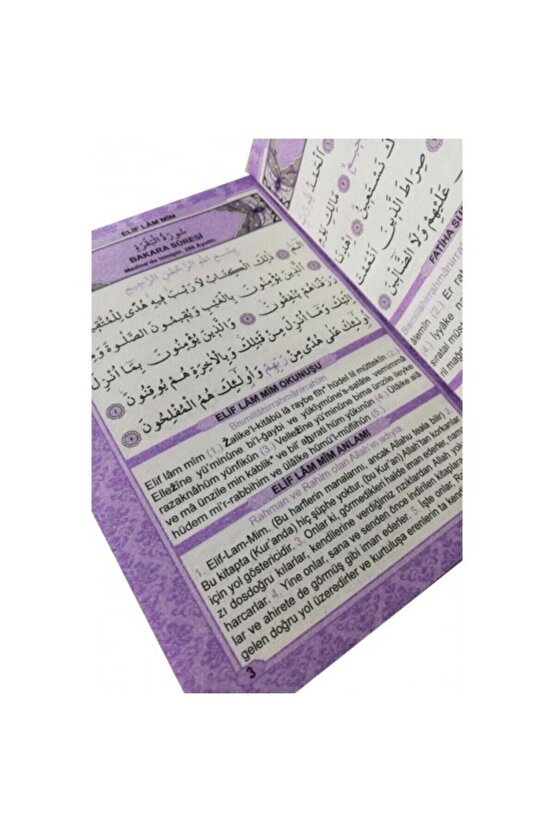 ELİF LÂM MİM
سُورَةُ الْبَقَرَةِ
BAKARA SÛRESİ
بِسْمِ اللهِ الرَّحْمٰنِ الرَّحِيمِ
الٓمٓ ذٰلِكَ الْكِتَابُ لَا رَيْبَ فِيهِ هُدًى لِلْمُتَّقِينَ
الَّذِينَ يُؤْمِنُونَ بِالْغَيْبِ وَيُقِيمُونَ الصَّلٰوةَ
رَزَقْنَاهُمْ يُنْفِقُونَ وَالَّذِينَ يُؤْمِنُونَ بِمَا أُنْزِلَ
إِلَيْكَ وَمَا أُنْزِلَ مِنْ قَبْلِكَ وَبِالْاٰخِرَةِ هُمْ يُوقِنُونَ
أُولٰئِكَ عَلٰى هُدًى مِنْ رَبِّهِمْ وَأُولٰئِكَ هُمُ الْمُفْلِحُونَ
ELİF LÂM MİM OKUNUŞU
Bismillâhirrahmânirrahîm
Elif lâm mîm (1.) Žalike'l-kitâbü lâ raybe fîh* hüdel lil müttekîn (2.)
Ellezîne yü'minûne bi'l-ğaybi ve yükîymûne's-salâte vemimmâ
razaknâhüm yünfikûn (3.) Vellezîne yü'minûne bima ünzile ileyke
ve mâ ünzile min kâblik* ve bil' ahırati hüm yûkinûn (4.) Ülâike alâ
hüdem mi'r-rabbihim ve ülâike hümü'l-müflihûn (5.)
ELİF LÂM MİM ANLAMI
Rahman ve Rahim olan Allah'ın adıyla
1. Elif-Lam-Mim. (Bu harflerin manalarını, ancak Allahu teala bilir) 2.
Bu kitapta (Kur'anda) hiç şüphe yoktur, (bu Kur'an) Allah'tan korkanlar
için yol göstericidir. 3. Onlar ki görmedikleri halde iman ederler,
zı dosdoğru kılarlar, kendilerine verdiğimiz rızıklardan Allah
harcarlar. 4. Yine onlar, sana ve senden önce indirilen
lar ve ahirete de görmüş gibi iman ederler. 5. İşte onlar,
gelen doğru yol üzeredirler ve kurtuluşa erenlerin ta
3
نَسْتَعِينُ
صِرَاطَ الَّذِينَ أَنْعَمْتَ
عَلَيْهِمْ وَلَا الضَّالِّينَ
FATİHA SÛ
Bismillâhirrahmânirrahîm